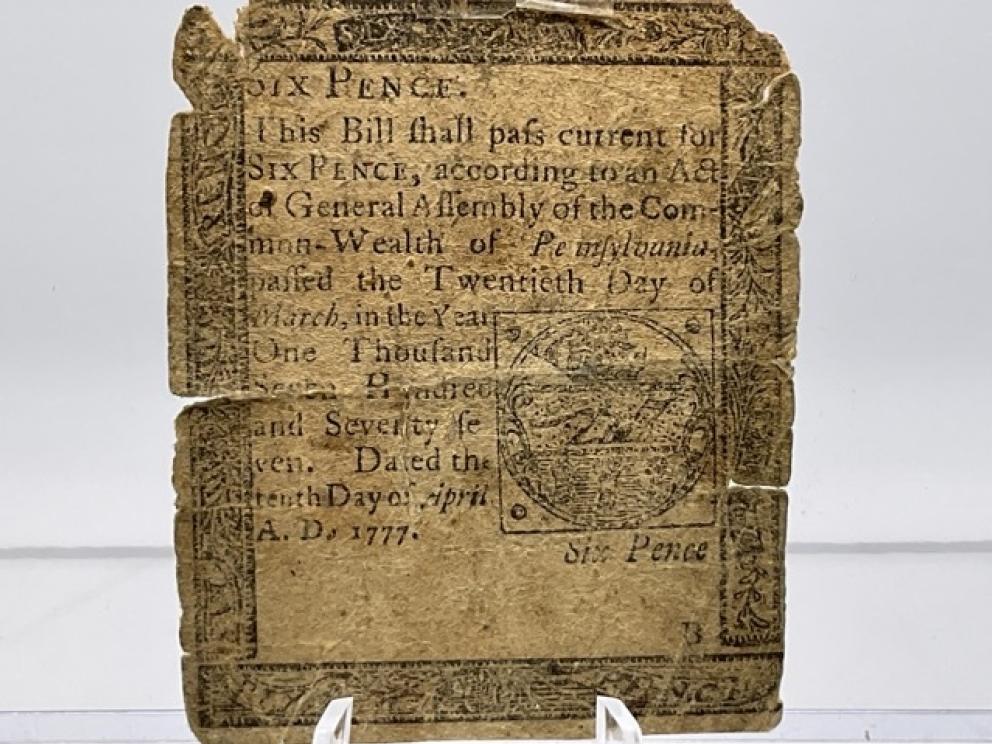 SIX PENCE.
This Bill ſhall paſs current for
SIX PENCE, according to an Act
of General Aſſembly of the Com-
mon-Wealth of Pennſylvania,
paſſed the Twentieth Day of
March, in the Year
One Thouſand
Seven Hundred
and Seventy ſe
ven. Dated the
tenth Day of April
A. D. 1777.
Six Pence
B
PENCE